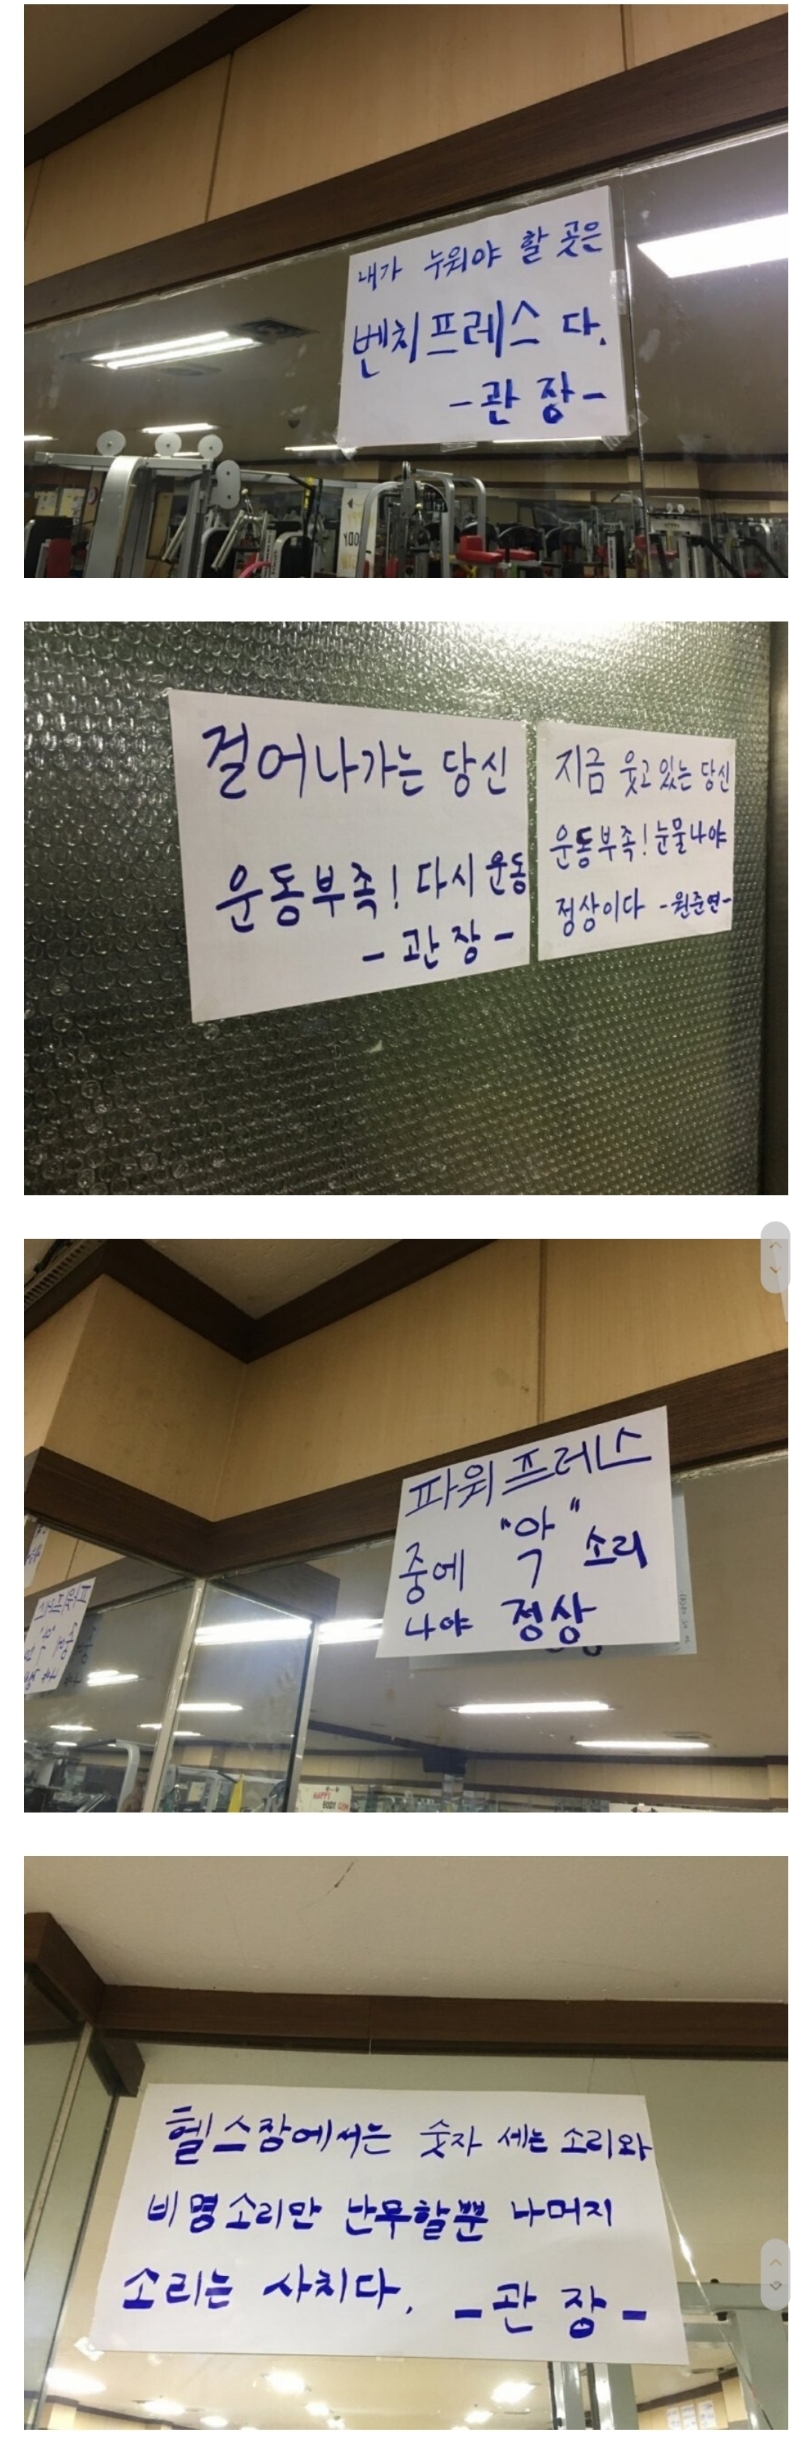 내가 누워야 할 곳은
벤치프레스 다.
-관 장-
걸어나가는 당신
운동부족! 다시 운동
- 관 장 -
지금 웃고 있는 당신
운동부족! 눈물나야
정상이다 -원준연-
파워프레스
중에 "악" 소리
나야 정상
HAPPY
BODY GYM
헬스장에서는 숫자 세는 소리와
비명소리만 난무할뿐 나머지
소리는 사치다. -관 장-